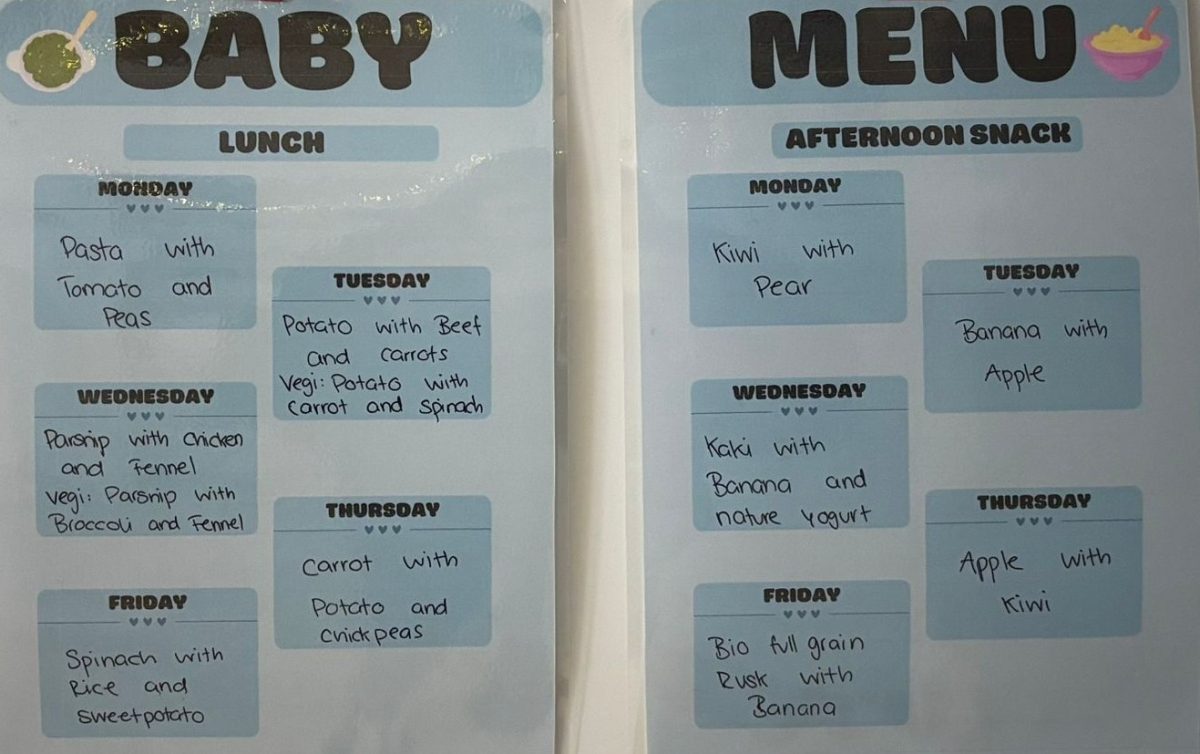 BABY
LUNCH
MONDAY
Pasta with
Tomato and
Peas
TUESDAY
Potato with Beef
and carrots
Vegi: Potato with
Carrot and Spinach
WEDNESDAY
Parsnip with Chicken
and Fennel
Vegi: Parsnip with
Broccoli and Fennel
THURSDAY
Carrot with
Potato and
Chickpeas
FRIDAY
Spinach with
Rice and
Sweetpotato
MENU
AFTERNOON SNACK
MONDAY
Kiwi with
Pear
TUESDAY
Banana with
Apple
WEDNESDAY
Kaki with
Banana and
nature yogurt
THURSDAY
Apple with
Kiwi
FRIDAY
Bio full grain
Rusk with
Banana